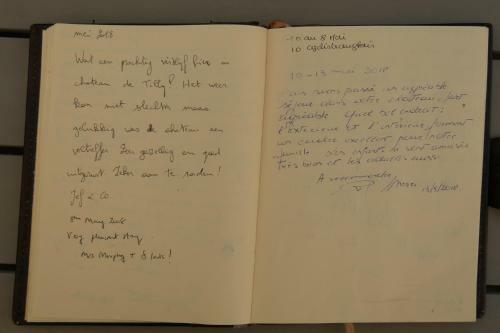 mei 2018
Wat een prachtig verblijf hier in
chateau de Tilly! Het weer
kon niet slechter maar
gelukkig was de chateau een
voltreffer. Zeer gezellig en goed
uitgerust. Zeker aan te raden!
Jef & Co
8th May 2018
Very pleasant stay
Mrs Murphy + kids!
10 au 8 Mai
10
10-13 mai 2018
Nous avons passé un agréable
séjour dans votre château fort
agréable. Quel bel endroit:
l'extérieur et l'intérieur forment
un cadre excellent pour notre
famille. Les enfants se sont amusés
très bien et les adultes aussi.
A recommander